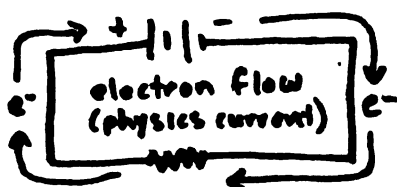 + -
electron flow
e⁻ (physics current) e⁻